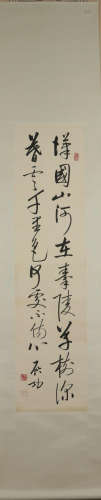 漢國山河在秦陵草樹深
暮雲千里色無處不傷心 启功